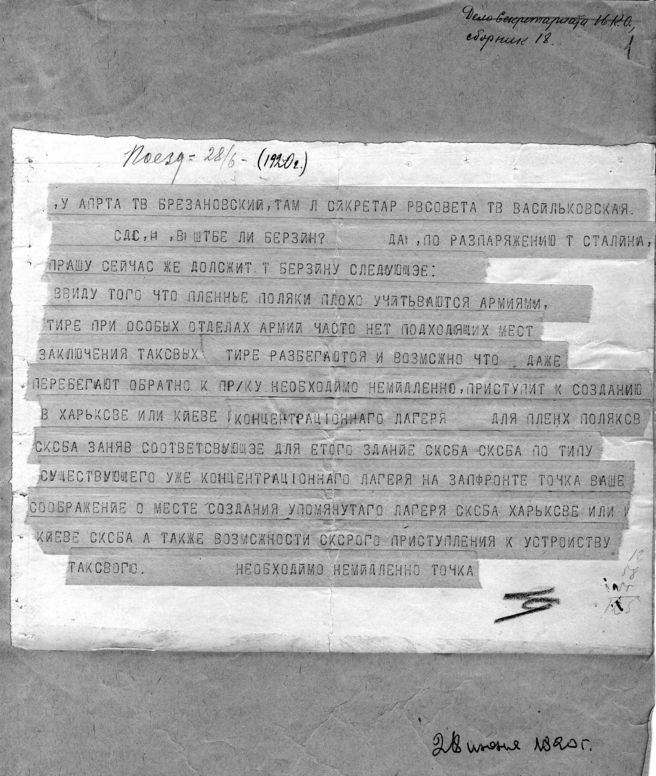 Дело Секретариата
сборник 18.
Поезд = 28/6 - (1920г.)
,У АПРТА ТВ БРЕЗАНОВСКИЙ,ТАМ Л СЙКРЕТАР РВСОВЕТА ТВ ВАСИЛЬКОВСКАЯ.
ШТБЕ ЛИ БЕРЗИН? ДА! ,ПО РАЗПАРЯЖЕНИЮ Т СТАЛИНА,
ПРАШУ СЕЙЧАС ЖЕ ДОЛСЖИТ Т БЕРЗИНУ СЛЕДУЮЩЭЕ:
ВВИДУ ТОГО ЧТО ПЛЕННЫЕ ПОЛЯКИ ПЛОХО УЧИТЬВАЮТСЯ АРМИЯМИ,
ТИРЕ ПРИ ОСОБЫХ ОТДЕЛАХ АРМИЙ ЧАСТО НЕТ ПОДХОДЯЩИХ МЕСТ
ЗАКЛЮЧЕНИЯ ТАКСВЫХ ТИРЕ РАЗБЕГАЮТСЯ И ВОЗМСЖНО ЧТО , ДАЖЕ
ПЕРЕБЕГАЮТ ОБРАТНО К ПР/КУ НЕОБХОДЙМО НЕМЙДЛЕННО,ПРИСТУПИТ К СОЗДАНИЮ
В ХАРЬКСВЕ ИЛИ КИЕВЕ КОНЦЕНТРАЦIОННАГО ЛАГЕРЯ ДЛЯ ПЛЕНХ ПОЛЯКСВ
СКСБА ЗАНЯВ СООТВЕТСВУЮЩЭЕ ДЛЯ ЕТОГО ЗДАНИЕ СКСБА СКСБА ПО ТИПУ
СУЩЕСТВУЮЩЕГО УЖЕ КОНЦЕНТРАЦIОННАГО ЛАГЕРЯ НА ЗАПФРОНТЕ ТОЧКА ВАШЕ
СООБРАЖЕНИЕ О МЕСТЕ СОЗДАНИЯ УПОМЯНУТАГО ЛАГЕРЯ СКСБА ХАРЬКСВЕ ИЛИ
КИЕВЕ СКСБА А ТАКЖЕ ВОЗМСЖНОСТИ СКСРОГО ПРИСТУПЛЕНИЯ К УСТРОИСТВУ
ТАКСВОГЮ. НЕОБХОДЙМО НЕМЙДЛЕННО ТОЧКА
28 июня 1920г.